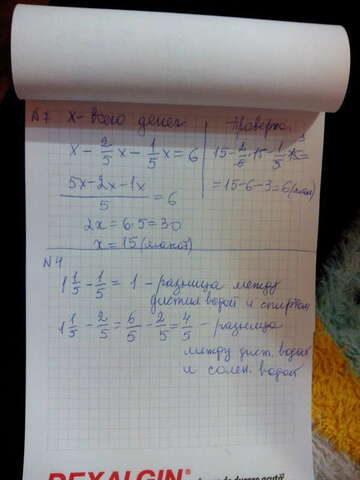 №7 x - всего денег
x - 2/5 x - 1/5 x = 6
(5x-2x-1x)/5 = 6
2x = 6·5 = 30
x = 15 (монет)
Проверка:
= 15-6-3 = 6 (монет)
№4
1 1/5 - 1/5 = 1 - разница между
дистил водой и спиртом
1 1/5 - 2/5 = 6/5 - 2/5 = 4/5 - разница
между дист. водой
и солен. водой
DEXALGIN®